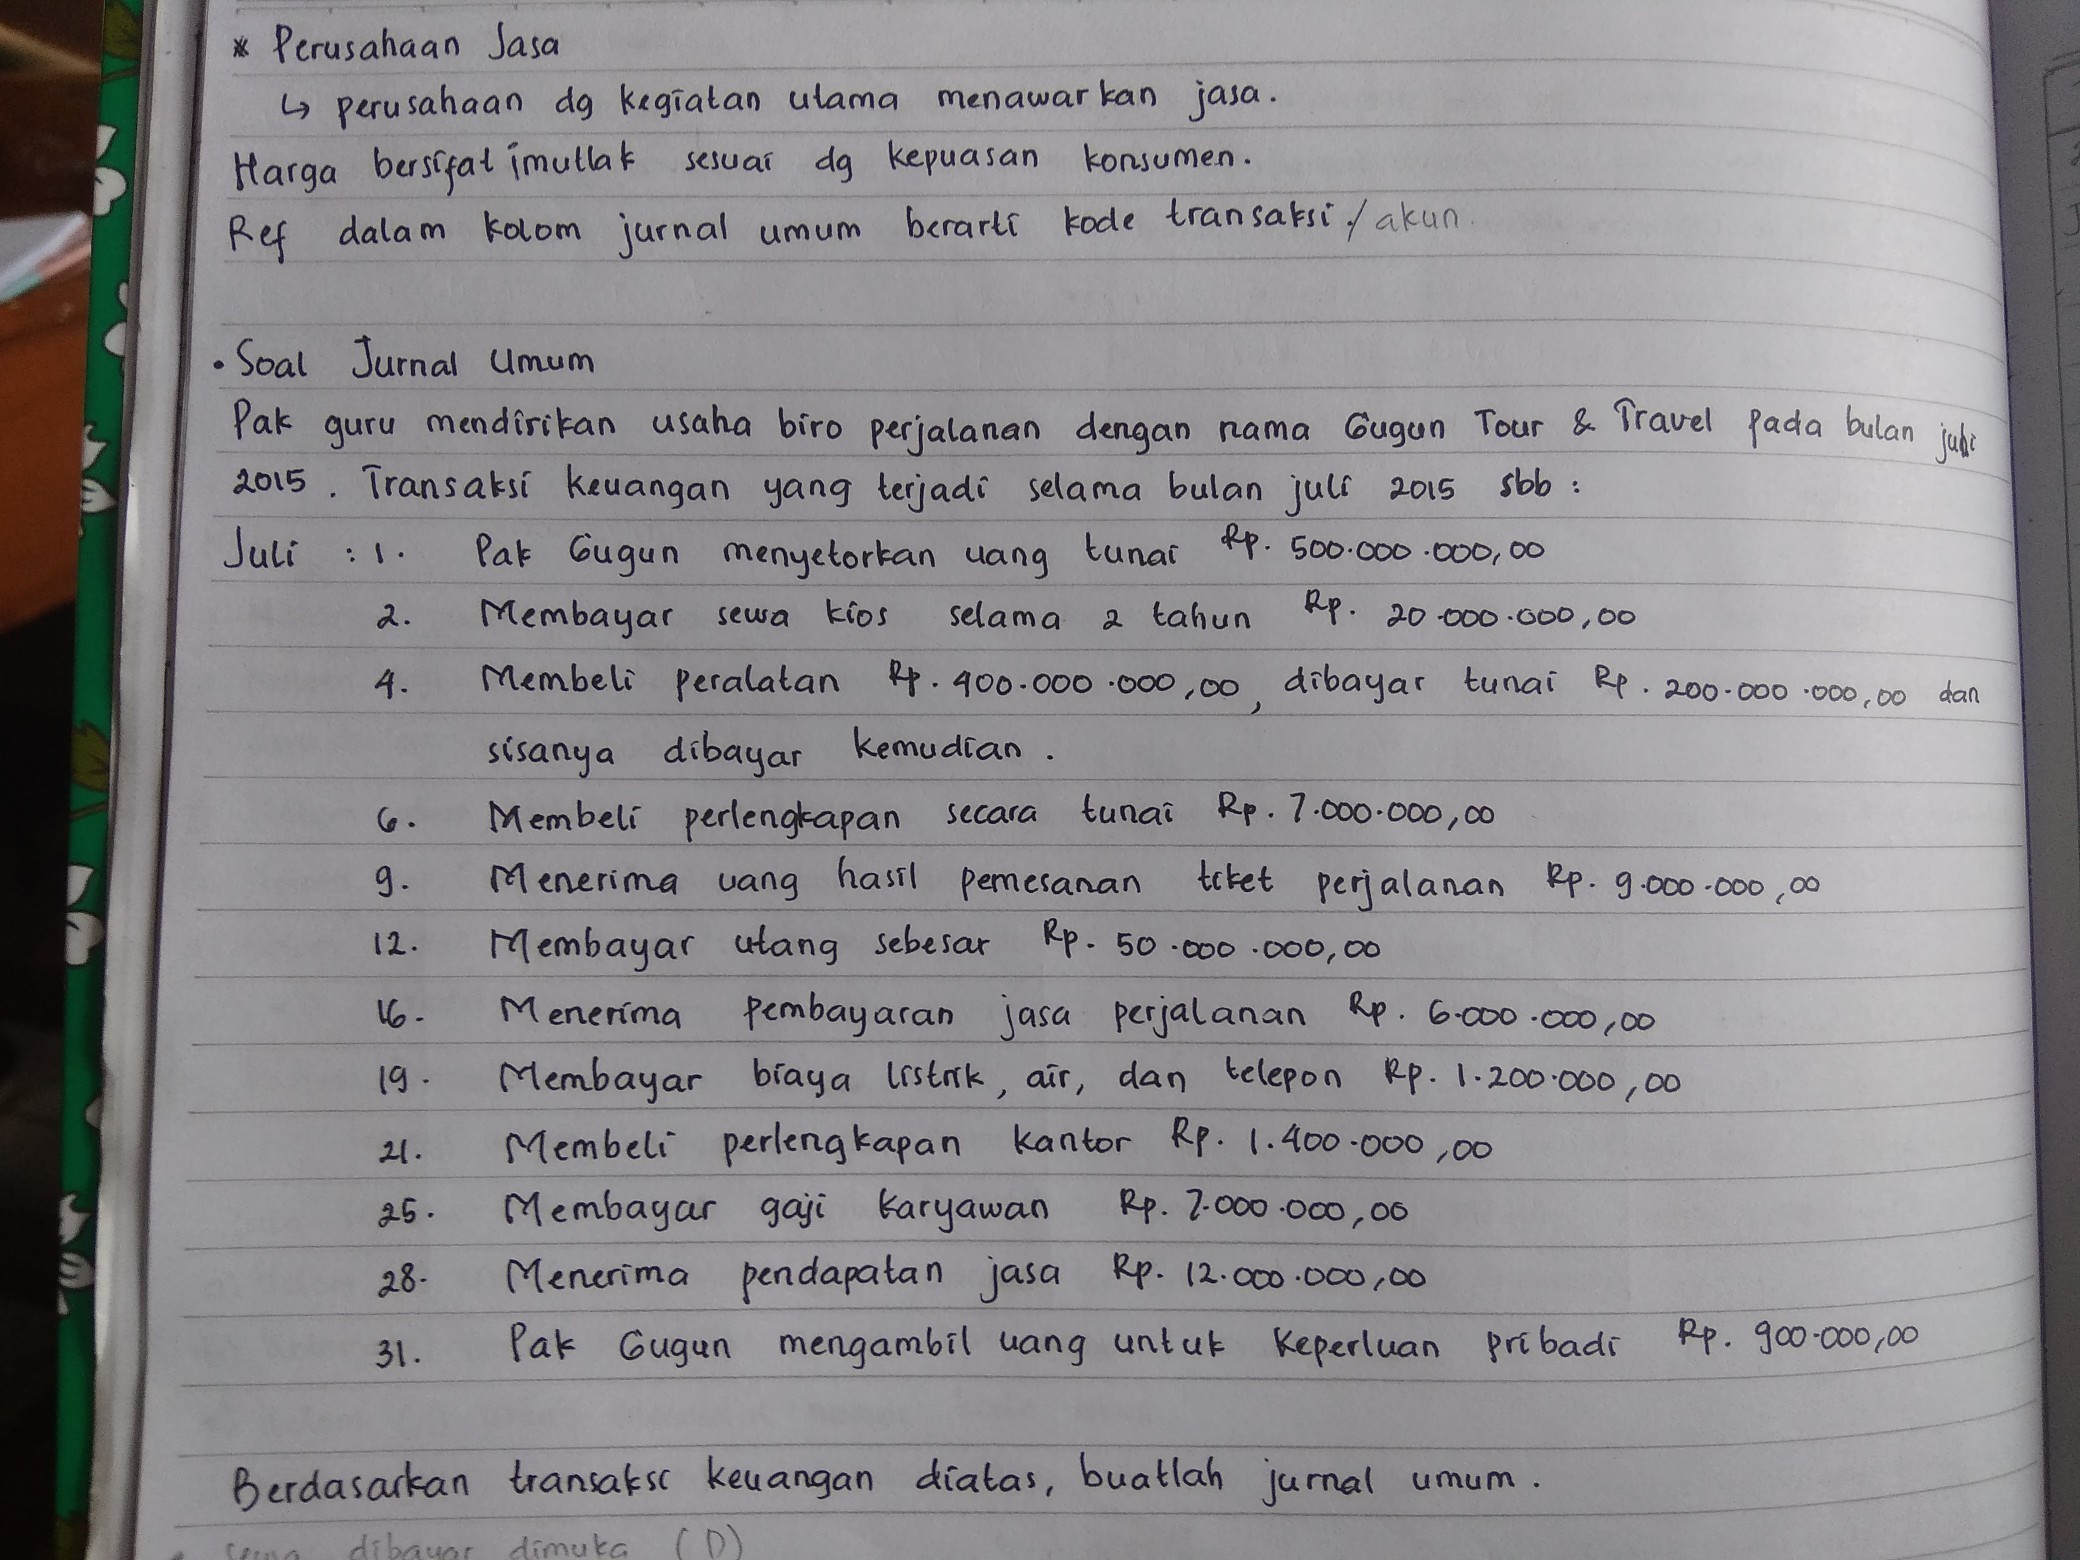 * Perusahaan Jasa
↳ perusahaan dg kegiatan utama menawarkan jasa.
Harga bersifat mutlak sesuai dg kepuasan konsumen.
Ref dalam kolom jurnal umum berarti kode transaksi / akun.
• Soal Jurnal Umum
Pak guru mendirikan usaha biro perjalanan dengan nama Gugun Tour & Travel pada bulan juli
2015. Transaksi keuangan yang terjadi selama bulan juli 2015 sbb :
Juli : 1. Pak Gugun menyetorkan uang tunai Rp. 500.000.000,00
2. Membayar sewa kios selama 2 tahun Rp. 20.000.000,00
4. Membeli peralatan Rp. 400.000.000,00, dibayar tunai Rp. 200.000.000,00 dan
sisanya dibayar kemudian.
6. Membeli perlengkapan secara tunai Rp. 7.000.000,00
9. Menerima uang hasil pemesanan tiket perjalanan Rp. 9.000.000,00
12. Membayar utang sebesar Rp. 50.000.000,00
16. Menerima pembayaran jasa perjalanan Rp. 6.000.000,00
19. Membayar biaya listrik, air, dan telepon Rp. 1.200.000,00
21. Membeli perlengkapan kantor Rp. 1.400.000,00
25. Membayar gaji karyawan Rp. 7.000.000,00
28. Menerima pendapatan jasa Rp. 12.000.000,00
31. Pak Gugun mengambil uang untuk keperluan pribadi Rp. 900.000,00
Berdasarkan transaksi keuangan diatas, buatlah jurnal umum.
sewa dibayar dimuka (D)